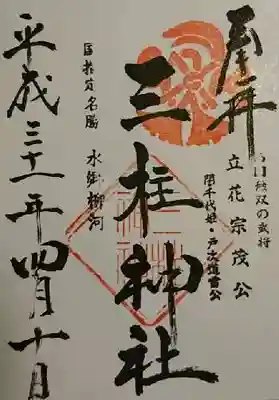 奉拝
西国無双の武将
立花宗茂公
誾千代姫・戸次道雪公
三柱神社
国指定名勝
水郷柳河
平成三十一年四月十日